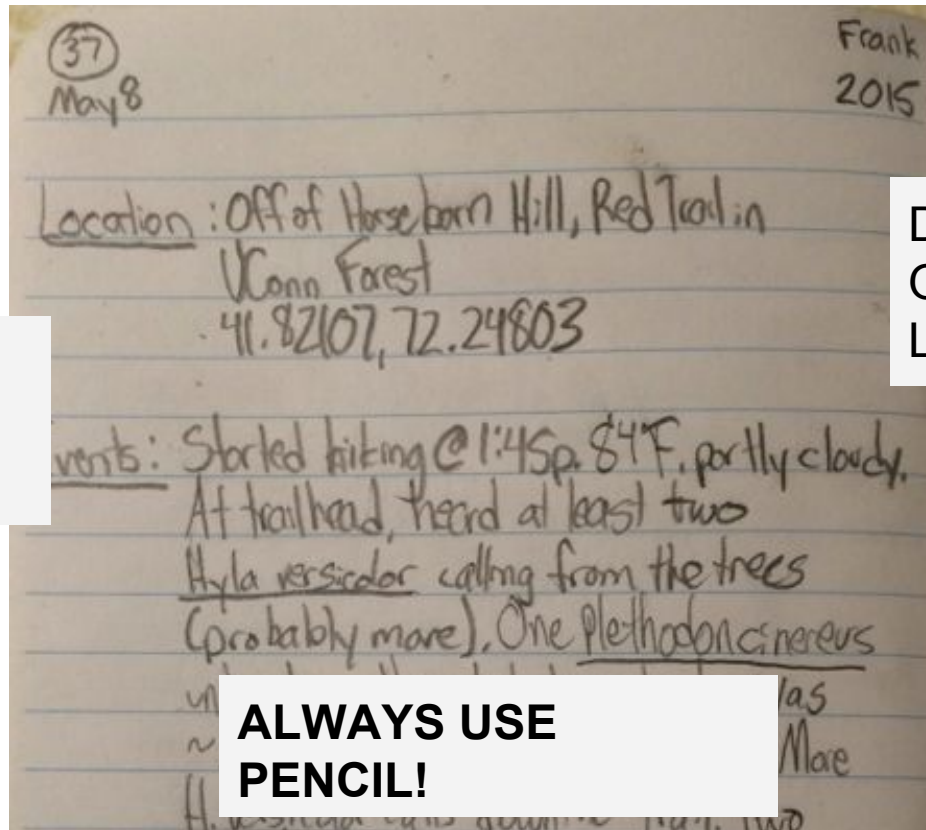 37
Frank
May 8
2015
Location: Off of Horsebarn Hill, Red Trail in
UConn Forest
41.82107, 72.24803
D
C
L
vents: Started hiking @ 1:45p. 84°F, partly cloudy.
At trailhead, heard at least two
Hyla versicolor calling from the trees
(probably more). One Plethodon cinereus
un
las
~
More
ALWAYS USE
PENCIL!
H. versicolor
two